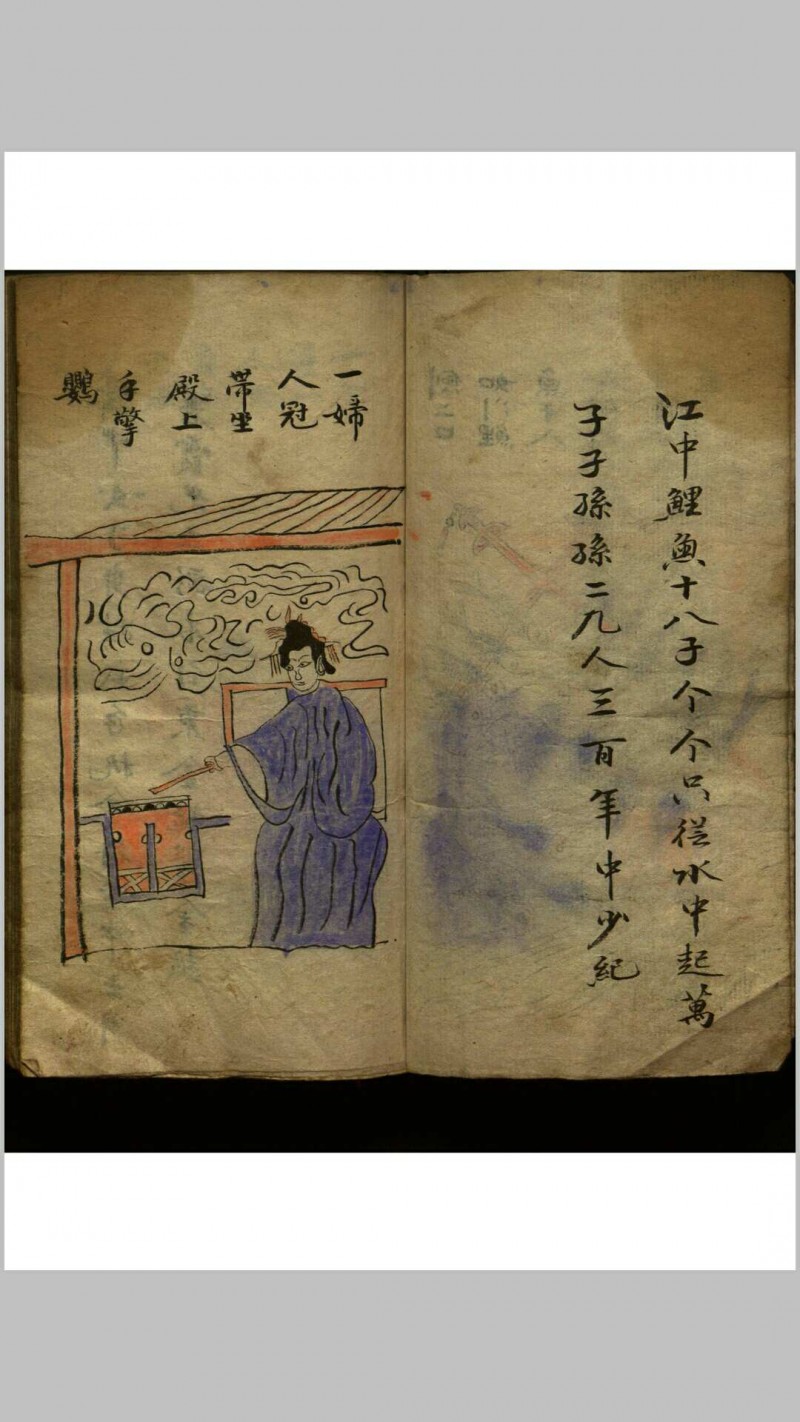 江中鯉魚十八子个个只從水中起萬
子子孫孫二九人三百年中少紀
一婦
人冠
帶坐
殿上
手擎
鸚